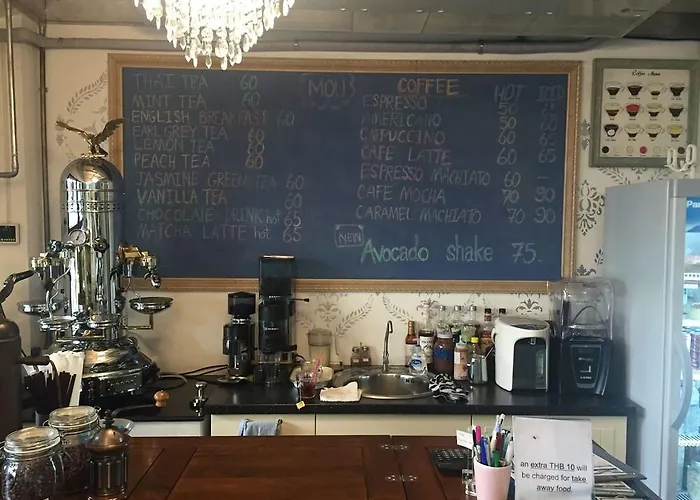 THAI TEA 60
MINT TEA 60
ENGLISH BREAKFAST 60
EARL GREY TEA 60
LEMON TEA 60
PEACH TEA 60
JASMINE GREEN TEA 60
VANILLA TEA 60
CHOCOLATE DRINK hot 65
MATCHA LATTE hot 65
MOU
COFFEE HOT ICED
ESPRESSO 50
AMERICANO 50
CAPPUCCINO 60
CAFE LATTE 60 65
ESPRESSO MACHIATO 60 -
CAFE MOCHA 70 90
CARAMEL MACHIATO 70 90
NEW
Avocado shake 75.-
Coffee Menu
an extra THB 10 will
be charged for take
away food